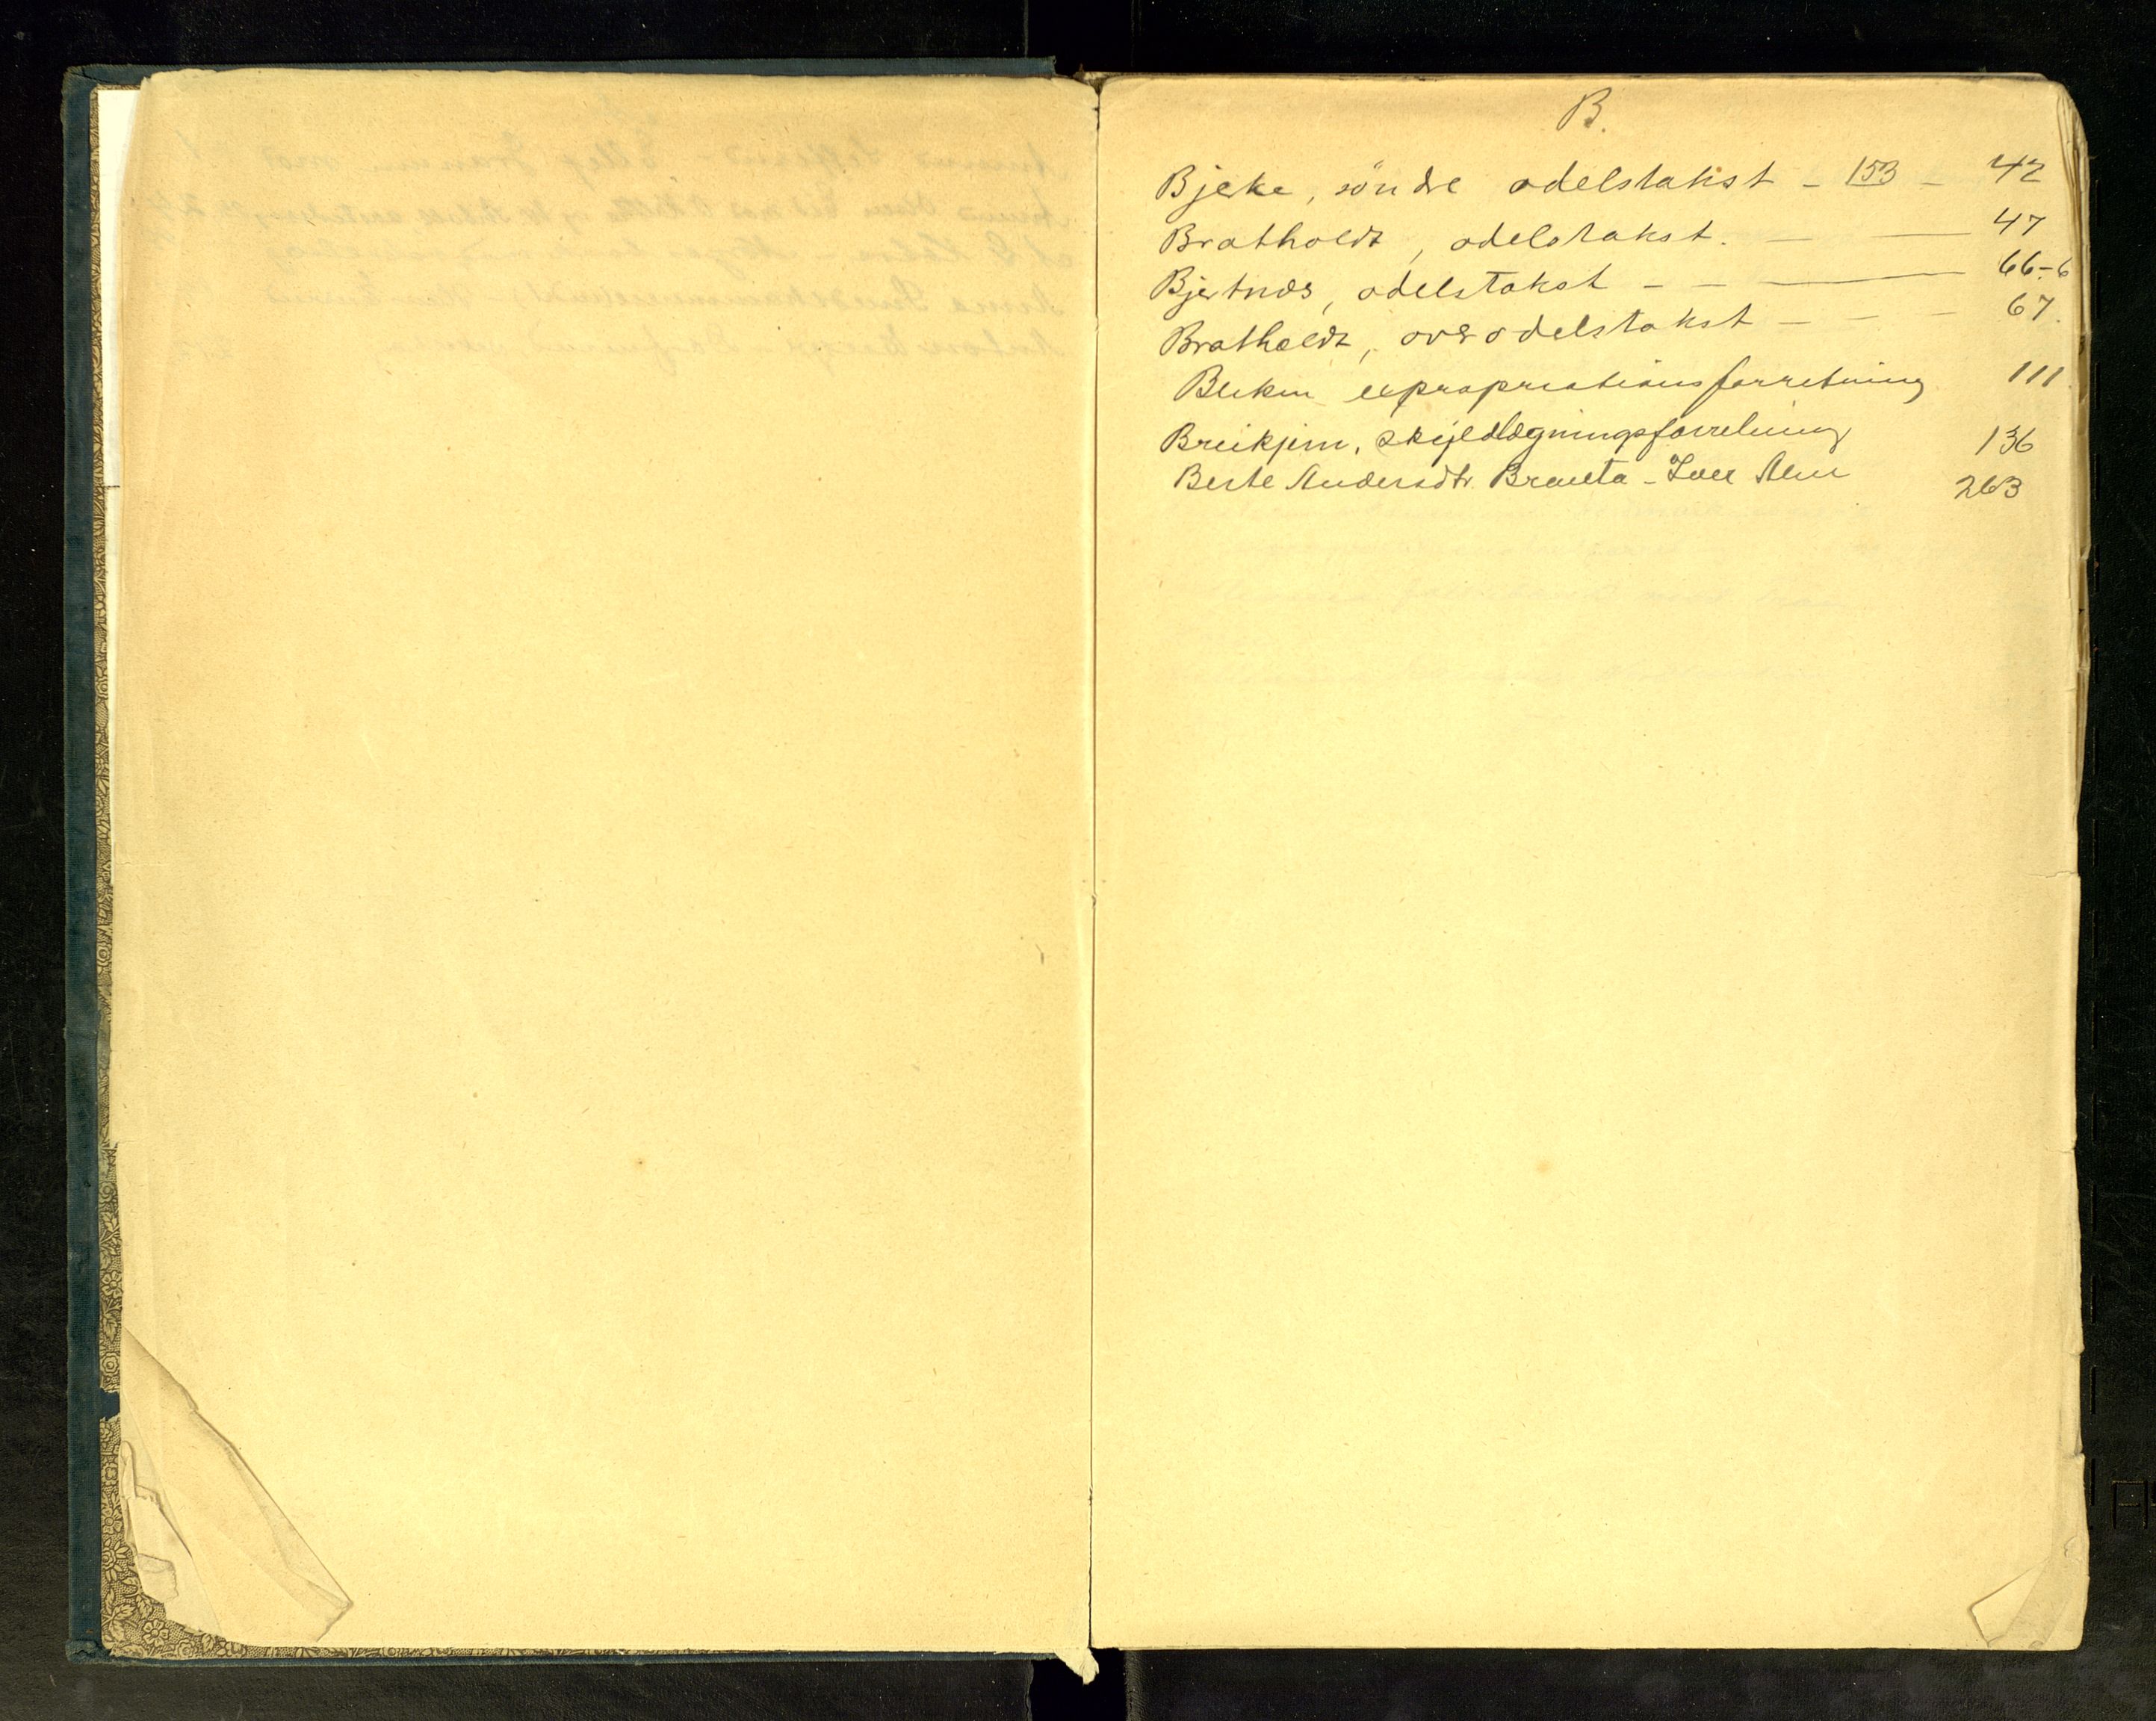 B.
Bjerke, söndre odelstakst - 153 - 42
Bratholdt, odelstakst. — — 47
Bjertnæs, odelstakst - - — 66-6
Bratholdt, overodelstakst - - - 67.
expropriationsforretning 111
Breikjern, skyldlægningsforretning 136
Berte Andersdtr. Braata - Iver Alm 263